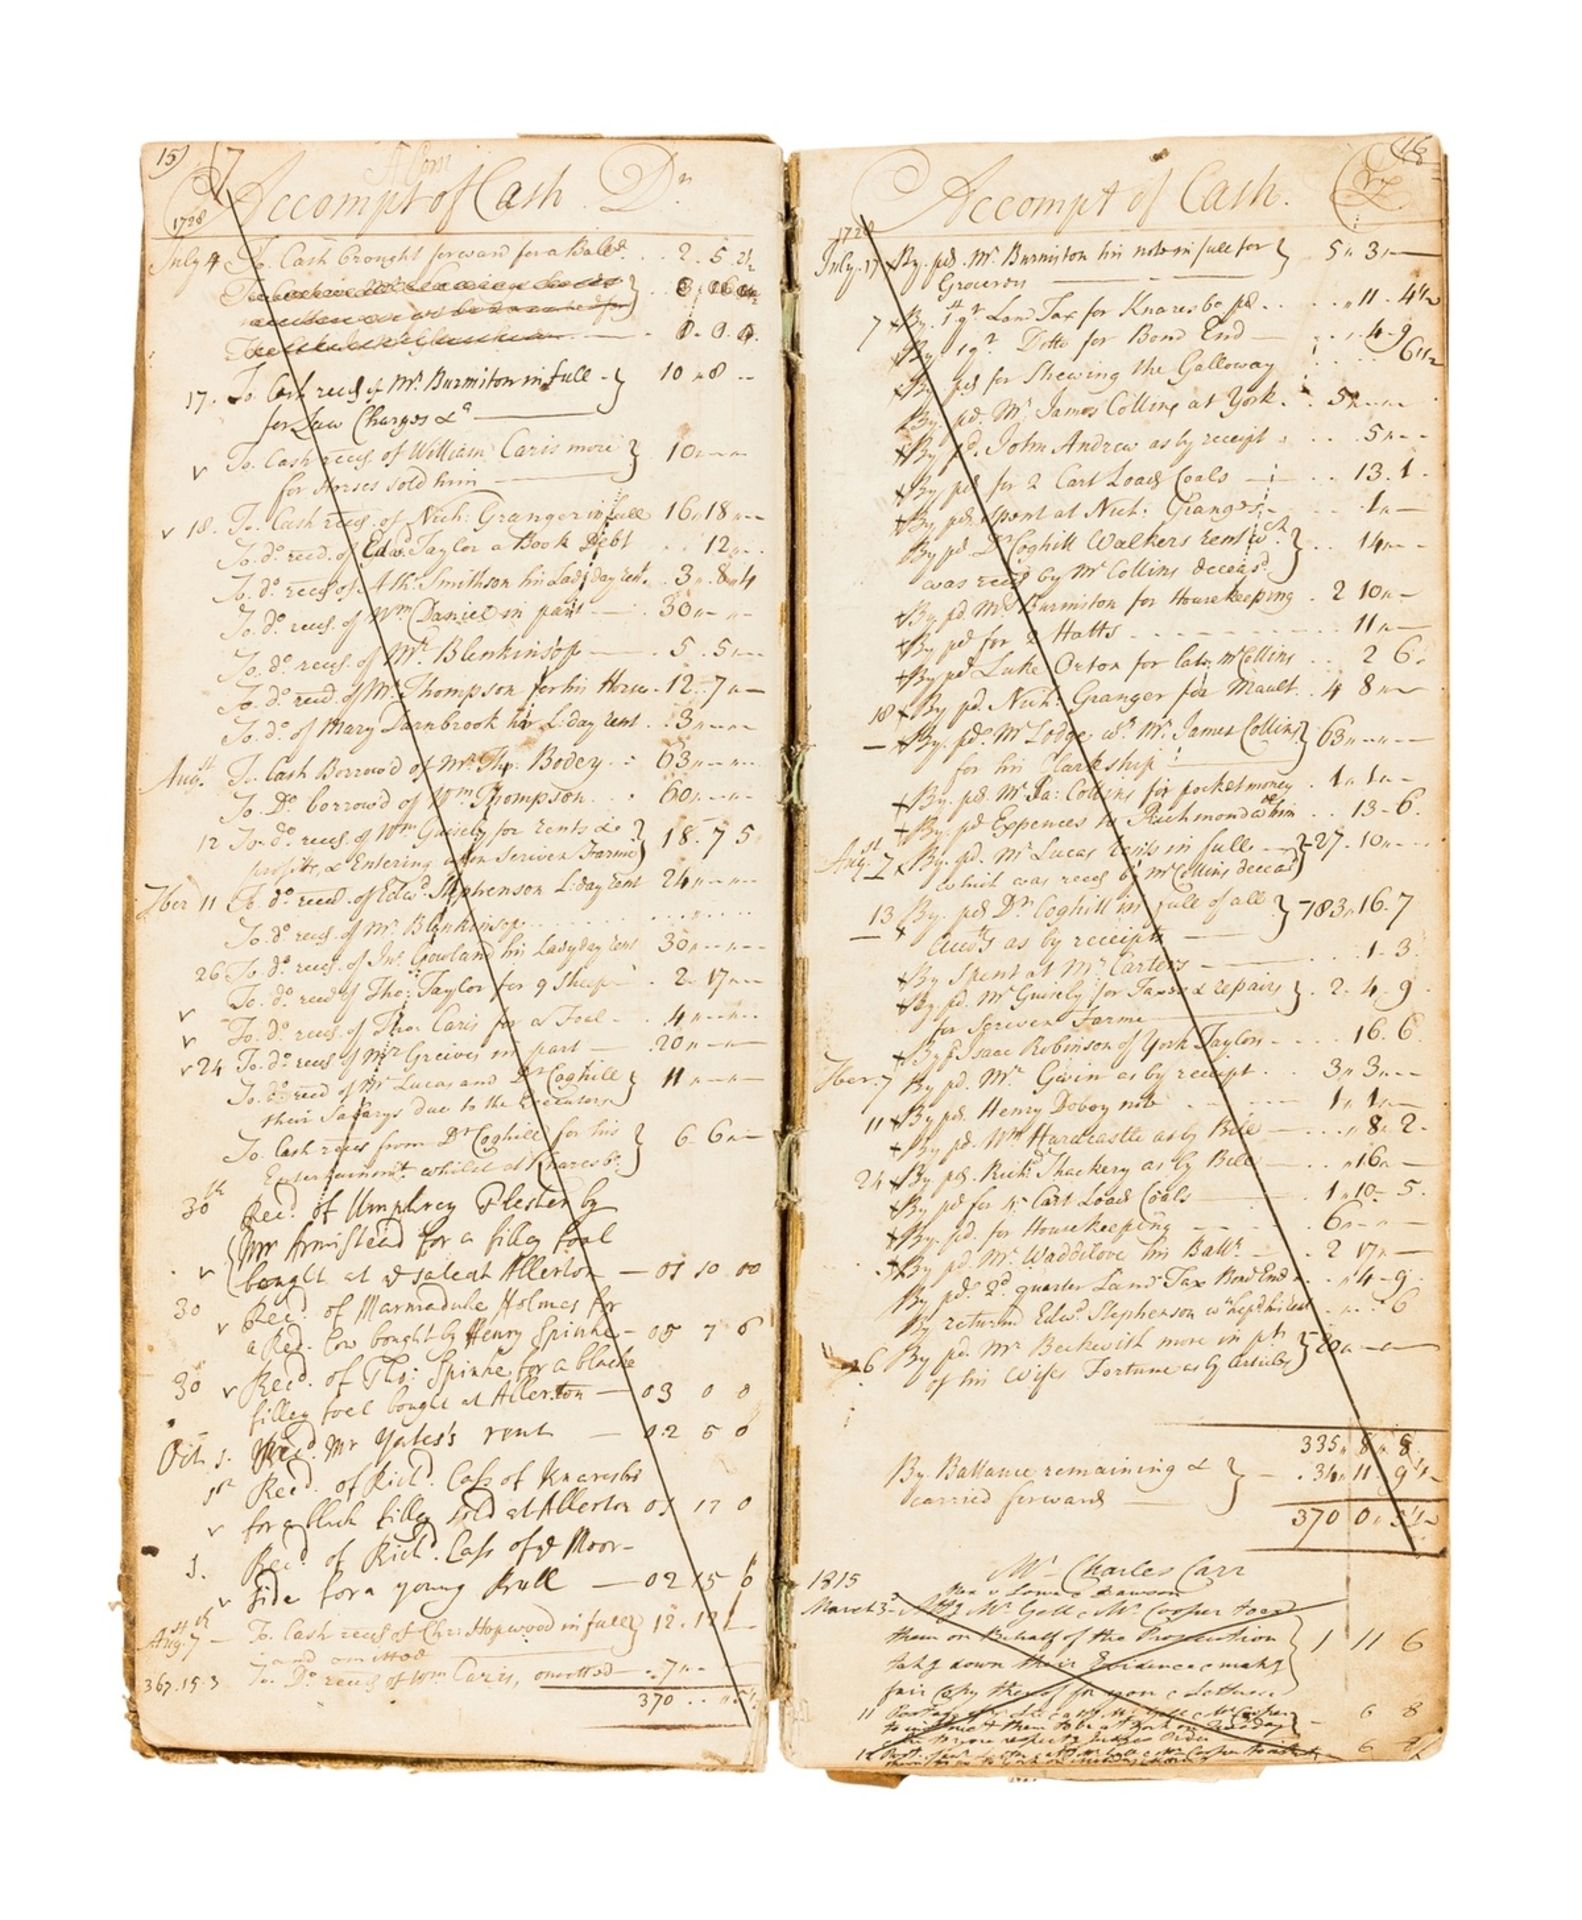 15)
Accompt of Cash Dr
1728
July 4 To Cash brought forward for a Balce . . 2 . 5 . 2½
17. To Cash recd of Mr Burniston in full - } 10 " 8 --
for Law Charges &c
v To Cash recd of William Caris more } 10 " - " -
for Horses sold him
v 18. To Cash recd of Nich: Granger in full 16 " 18 " --
To do recd of Edwd Taylor a Book Debt . . 12 " - .
To do recd of Smithson his Lady day rent . 3 " . 8 " 4
To do recd of Wm Daniel in part . 30 " - " -
To do recd of Mr Blenkinsop . 5 . 5 " --
To do recd of Mr Thompson for his Horse . 12 . 7 " -
To do of Mary Darnbrook her L:day rent . . 3 " - " -
Augst To Cash Borrow'd of Mr Tho: Bodey . : 63 " - " - .
To Do borrow'd of Wm Thompson . . . 60 " - " -
12 To do recd of Wm Guisely for rents & } 18 . 7 5
profitts, & Entering upon Scriven Farme }
7ber 11 To do recd of Edwd Stephenson L:day rent 24 " - " - .
To do recd of Mr Blenkinsop . . . . . . . . . " . . .
26 To do recd of Jno Gowland his Ladyday rent 30 " - " -
v To do recd of Tho: Taylor for 9 Sheep . 2 - 17 " --
v To do recd of Tho: Caris for a Foal - . 4 " - " - .
v 24 To do recd of Mr Greives in part — .20 " - " -
To do recd of Mr Lucas and Dr Coghill } 11 " - " -
their Salarys due to the Executors }
To Cash recd from Dr Coghill for his } 6 - 6 " -
Entertainmt whilst at Knaresbo: }
30th Recd. of Umphrey Plester by
Mr Armistead for a filley foal
v bought at ye sale at Allerton — 01 10 00
30 v Recd. of Marmaduke Holmes for
a Red Cow bought by Henry Spinke - 05 7 6
30 v Recd. of Tho: Spinke for a blacke
filley foel bought at Allerton — 03 0 0
Oct 1. Recd. Mr Yates's rent — 02 5 0
1st Recd. of Richd. Cass of Knaresbo
v for a black filley sold at Allerton 01 17 0
1. Recd. of Richd. Cass of ye Moor-
v side for a young Bull — 02 15 0
Augst 7th — To Cash recd of Chr: Hopwood in full } 12 . 12 -
and omitted
367.15.3 To Do recd of Wm Caris, omitted — . . 7 " - -
370 . .
16
Accompt of Cash. Cr
1728
July. 17 By. pd. Mr. Burniston his note in full for } 5 " 3 " —
7 By. 1st qr Land Tax for Knaresbo pd . . . . . " 11 . 4½
By. 1 qr. Ditto for Bond End — . . 4 - 9
By pd for Shewing the Galloway . . . 6½
By. pd. Mr James Collins at York .
By pd. John Andrew as by receipt . . . . 5 " - -
By pd for 2 Cart Loads Coals — . . 13 . 1 .
By pd. Spent at Nich: Grangers - . . 1 " —
By pd. Dr Coghill Walkers rent wch } . . 14 " - -
was recd by Mr Collins deceasd. }
By pd. Mr Burniston for Housekeeping . 2 10 " -
By pd for 2 Hatts . . . . . . 11 " —
By pd Luke Orton for late Mr Collins . . 2 6 .
18 By pd. Nich: Granger for Mault . . 4 8 " -
By. pd. Mr Lodge wth Mr. James Collins } 63 " - " —
for his Clarkship
By. pd. Mr Ja: Collins for pocket money . 1 " 1 " -
By. pd Expences to Richmond with him . . 13 - 6 .
Augst 7 By. pd. Mr Lucas rents in full — } 27 . 10 " - -
which was recd by Mr Collins deceasd }
13 By. pd Dr Coghill in full of all } 183 " 16 . 7
Accots as by receipt
By Spent at Mr Carters . . 1 - 3 .
By. pd. Mr Guisely for Taxes & repairs } . 2 . 4 . 9 .
for Scriven Farme
By pd Isaac Robinson of York Taylor - . . . . 16 . 6
7ber. 7 By pd. Mr. Gwin as by receipt . . 3 " 3 " --
11 By pd. Henry Dobey note . . . 1 " 1 " -
By pd. Wm Hardcastle as by Bill — . . . " 8 " 2 -
24 By pd. Richd. Thackery as by Bill — . . " 16 " —
By pd for 4: Cart Loads Coals . 1 " 10 - 5 .
By. pd. for Housekeeping - - - . 6 " - " —
By pd. Mr. Waddilove his Ball. . 2 17 " —
By pd. 2d. quarter Land Tax Bond End . . " 4 - 9 .
By return'd Edwd. Stephenson . . " . . 6
26 By pd. Mr Beckwith more in pt } 20 " - " —
of his Wifes Fortune as by Articles }
335 " 8 " 8
By Ballance remaining & } — . 34 " 11 . 9½
carried forward
370 0 " 5½
Mr Charles Carr
1815
March 3d Attg Mr. Gell & Mr. Cooper to
them on Behalf of the Prosecution } 1 11 6
takg down their Evidence & makg
fair Copy thereof for you & Letter
11 6 8
to instruct them to be at York on
12 6 8